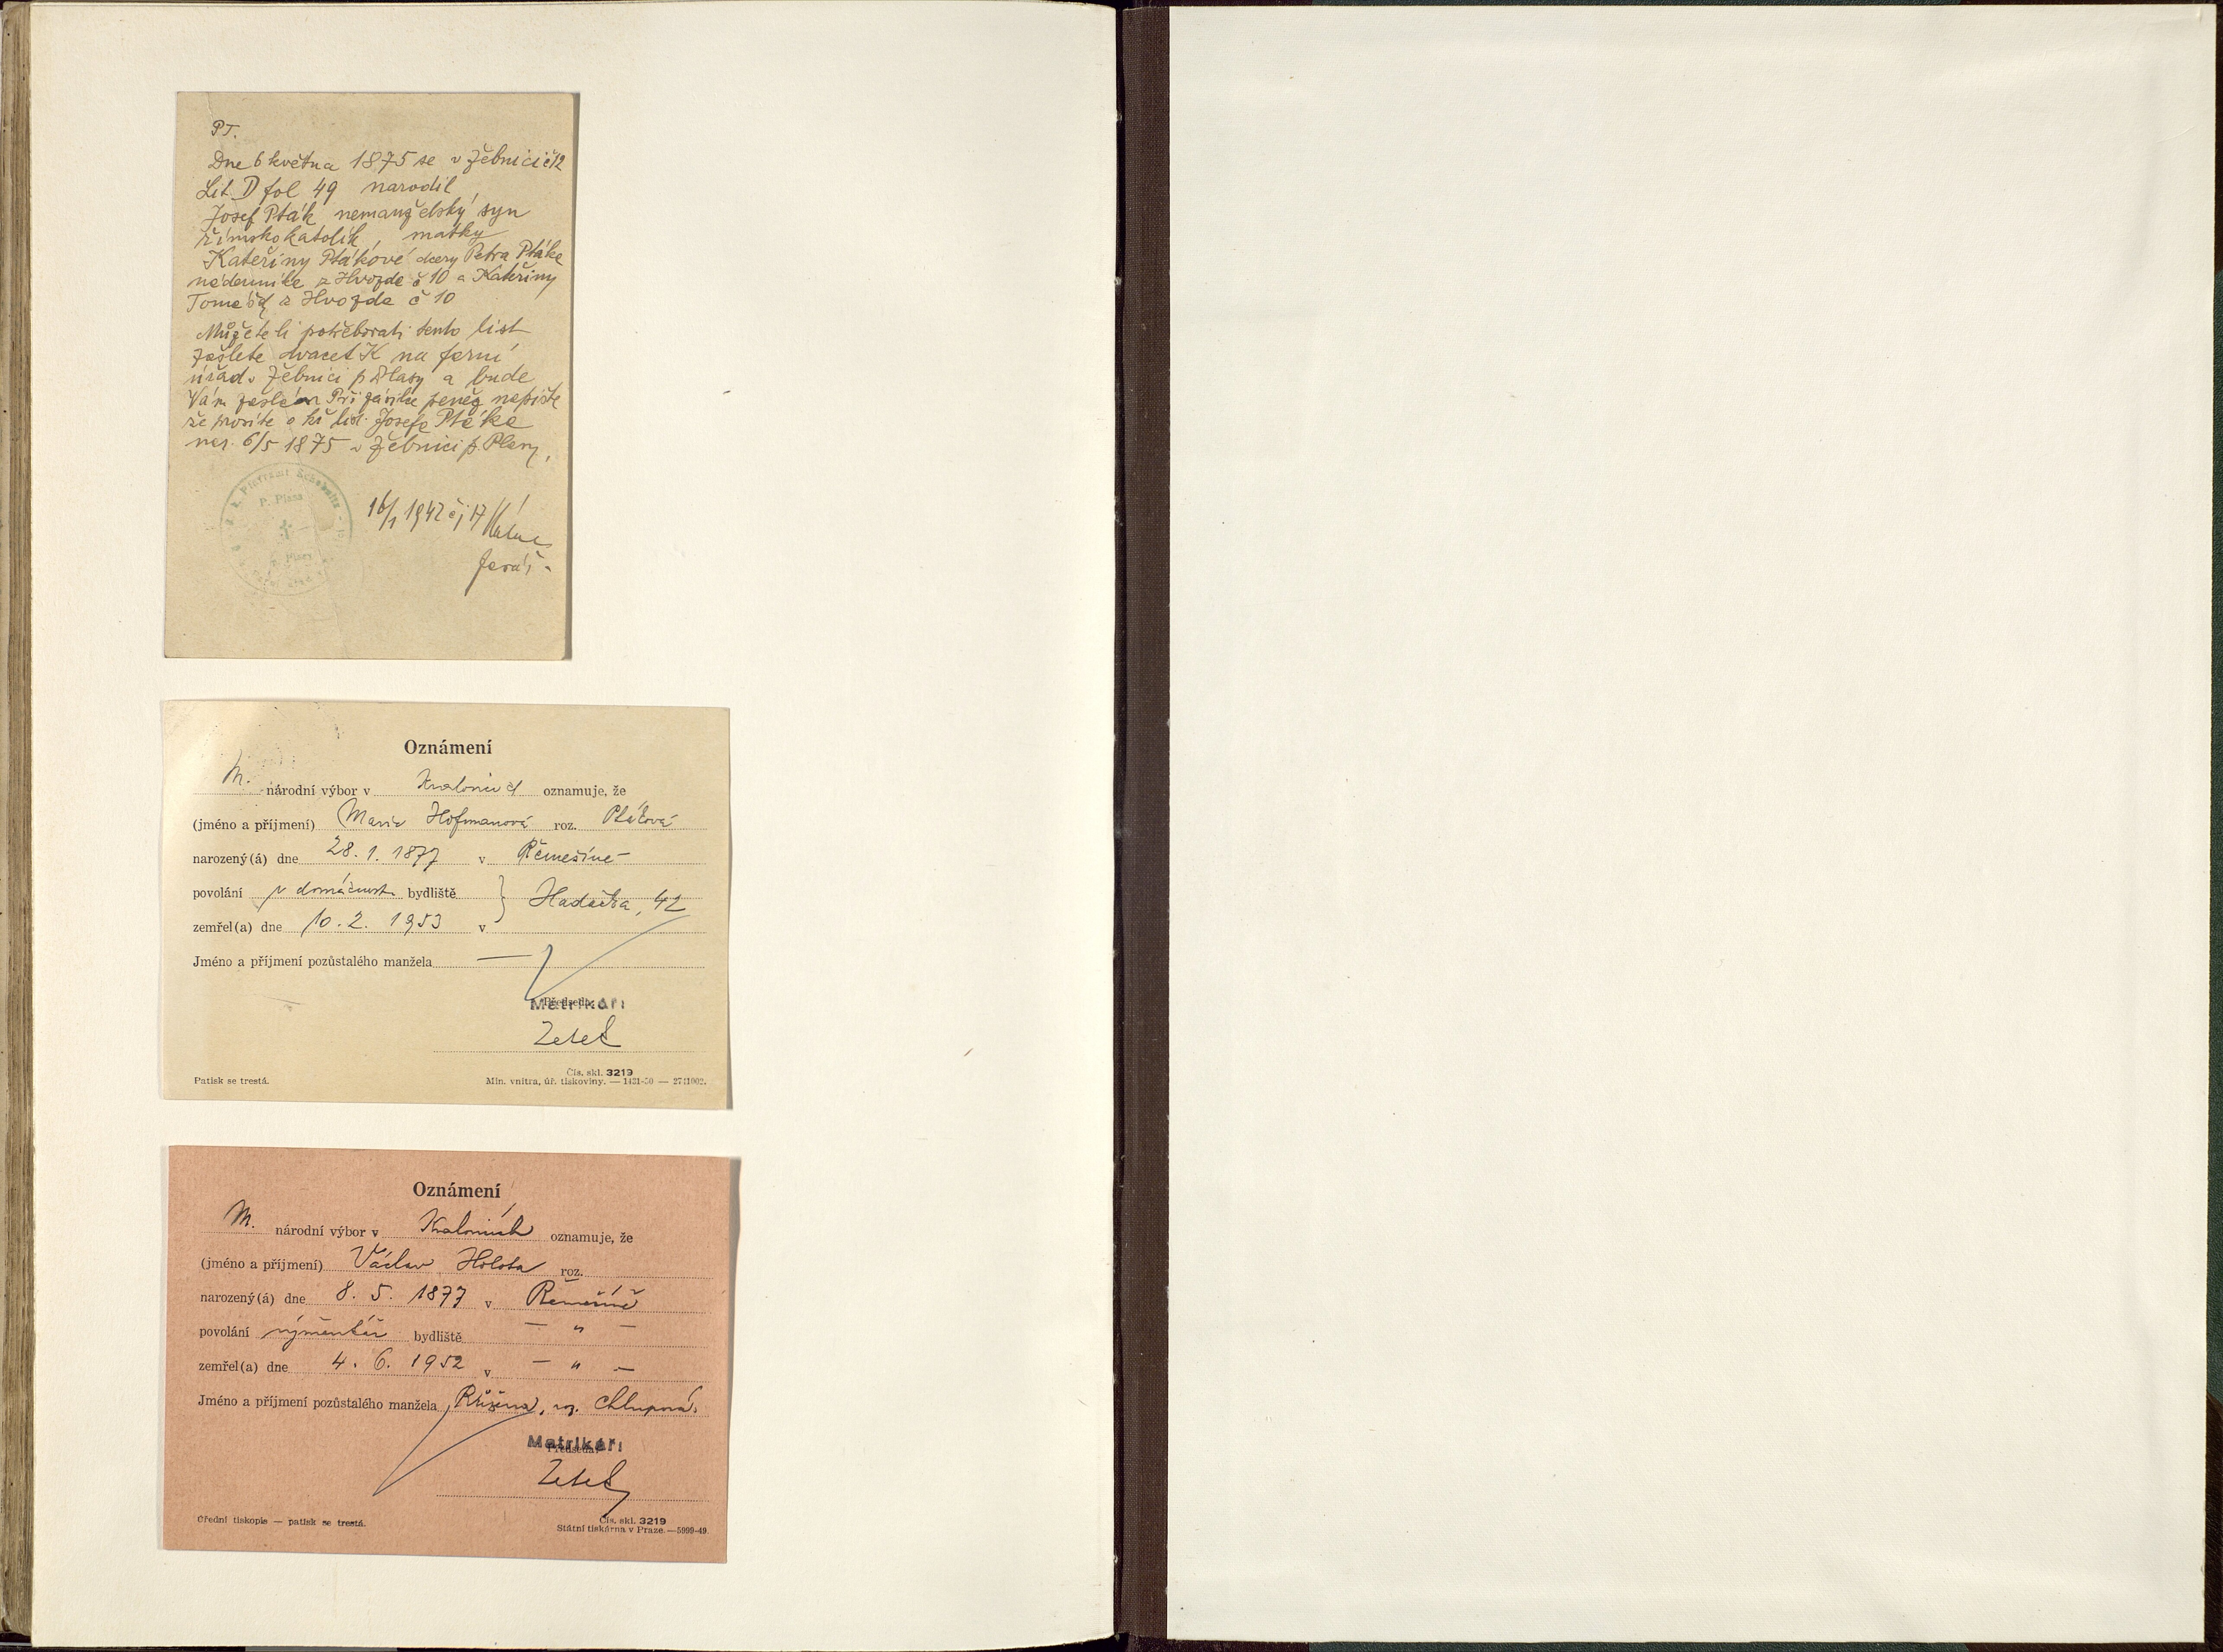 PT.
Dne 6 května 1875 se v Žebnici č 12
Lit. D fol 49 narodil
Josef Pták nemanželský syn
římskokatolík, matky
Kateřiny Ptákové dcery Petra Ptáka
nádenníka z Hvozda č 10 a Kateřiny
z Hvozda č 10
Můžete li potřebovati tento list
zašlete dvacet K na farní
úřad v Žebnici p Plasy a bude
Vám zaslán Při zásilce peněz napište
že prosíte o kř list Josefa Ptáka
nar. 6/5 1875 v Žebnici p. Plasy.
P. Plass
p. Plasy
16/1 1942 čj 17
farář.
Oznámení
M. národní výbor v Kralovicích oznamuje, že
(jméno a příjmení) Marie Hofmanová roz. Ptáková
narozený(á) dne 28. 1. 1877 v Řemešíně
povolání v domácnosti bydliště } Hadačka, 42
zemřel(a) dne 10. 2. 1953 v
Jméno a příjmení pozůstalého manžela —
Předseda:
Matrikář:
Patisk se trestá.
Čís. skl. 3219
Min. vnitra, úř. tiskoviny. — 1431-50 — 2741002.
Oznámení
M. národní výbor v Kralovicích oznamuje, že
(jméno a příjmení) Václav Holota roz.
narozený(á) dne 8. 5. 1877 v Řemešíně
povolání výměnkář bydliště — " —
zemřel(a) dne 4. 6. 1952 v — " —
Jméno a příjmení pozůstalého manžela Růžena, roz. Chlupová.
Předseda:
Matrikář:
Úřední tiskopis — patisk se trestá.
Čís. skl. 3219
Státní tiskárna v Praze. — 5999-49.